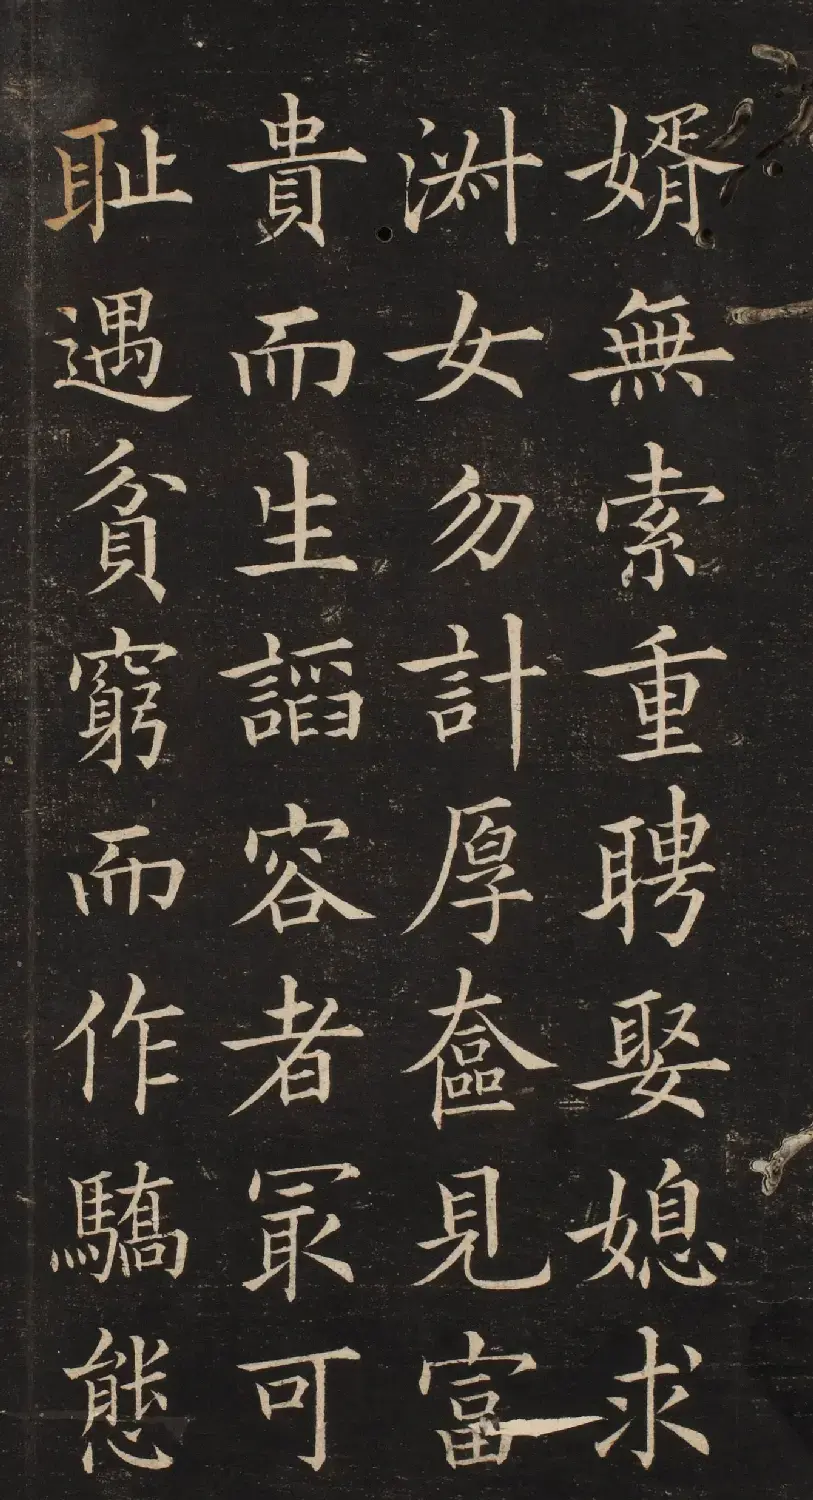 婿無索重聘娶媳求
淑女勿計厚奩見富
貴而生諂容者冣可
耻遇貧窮而作驕態